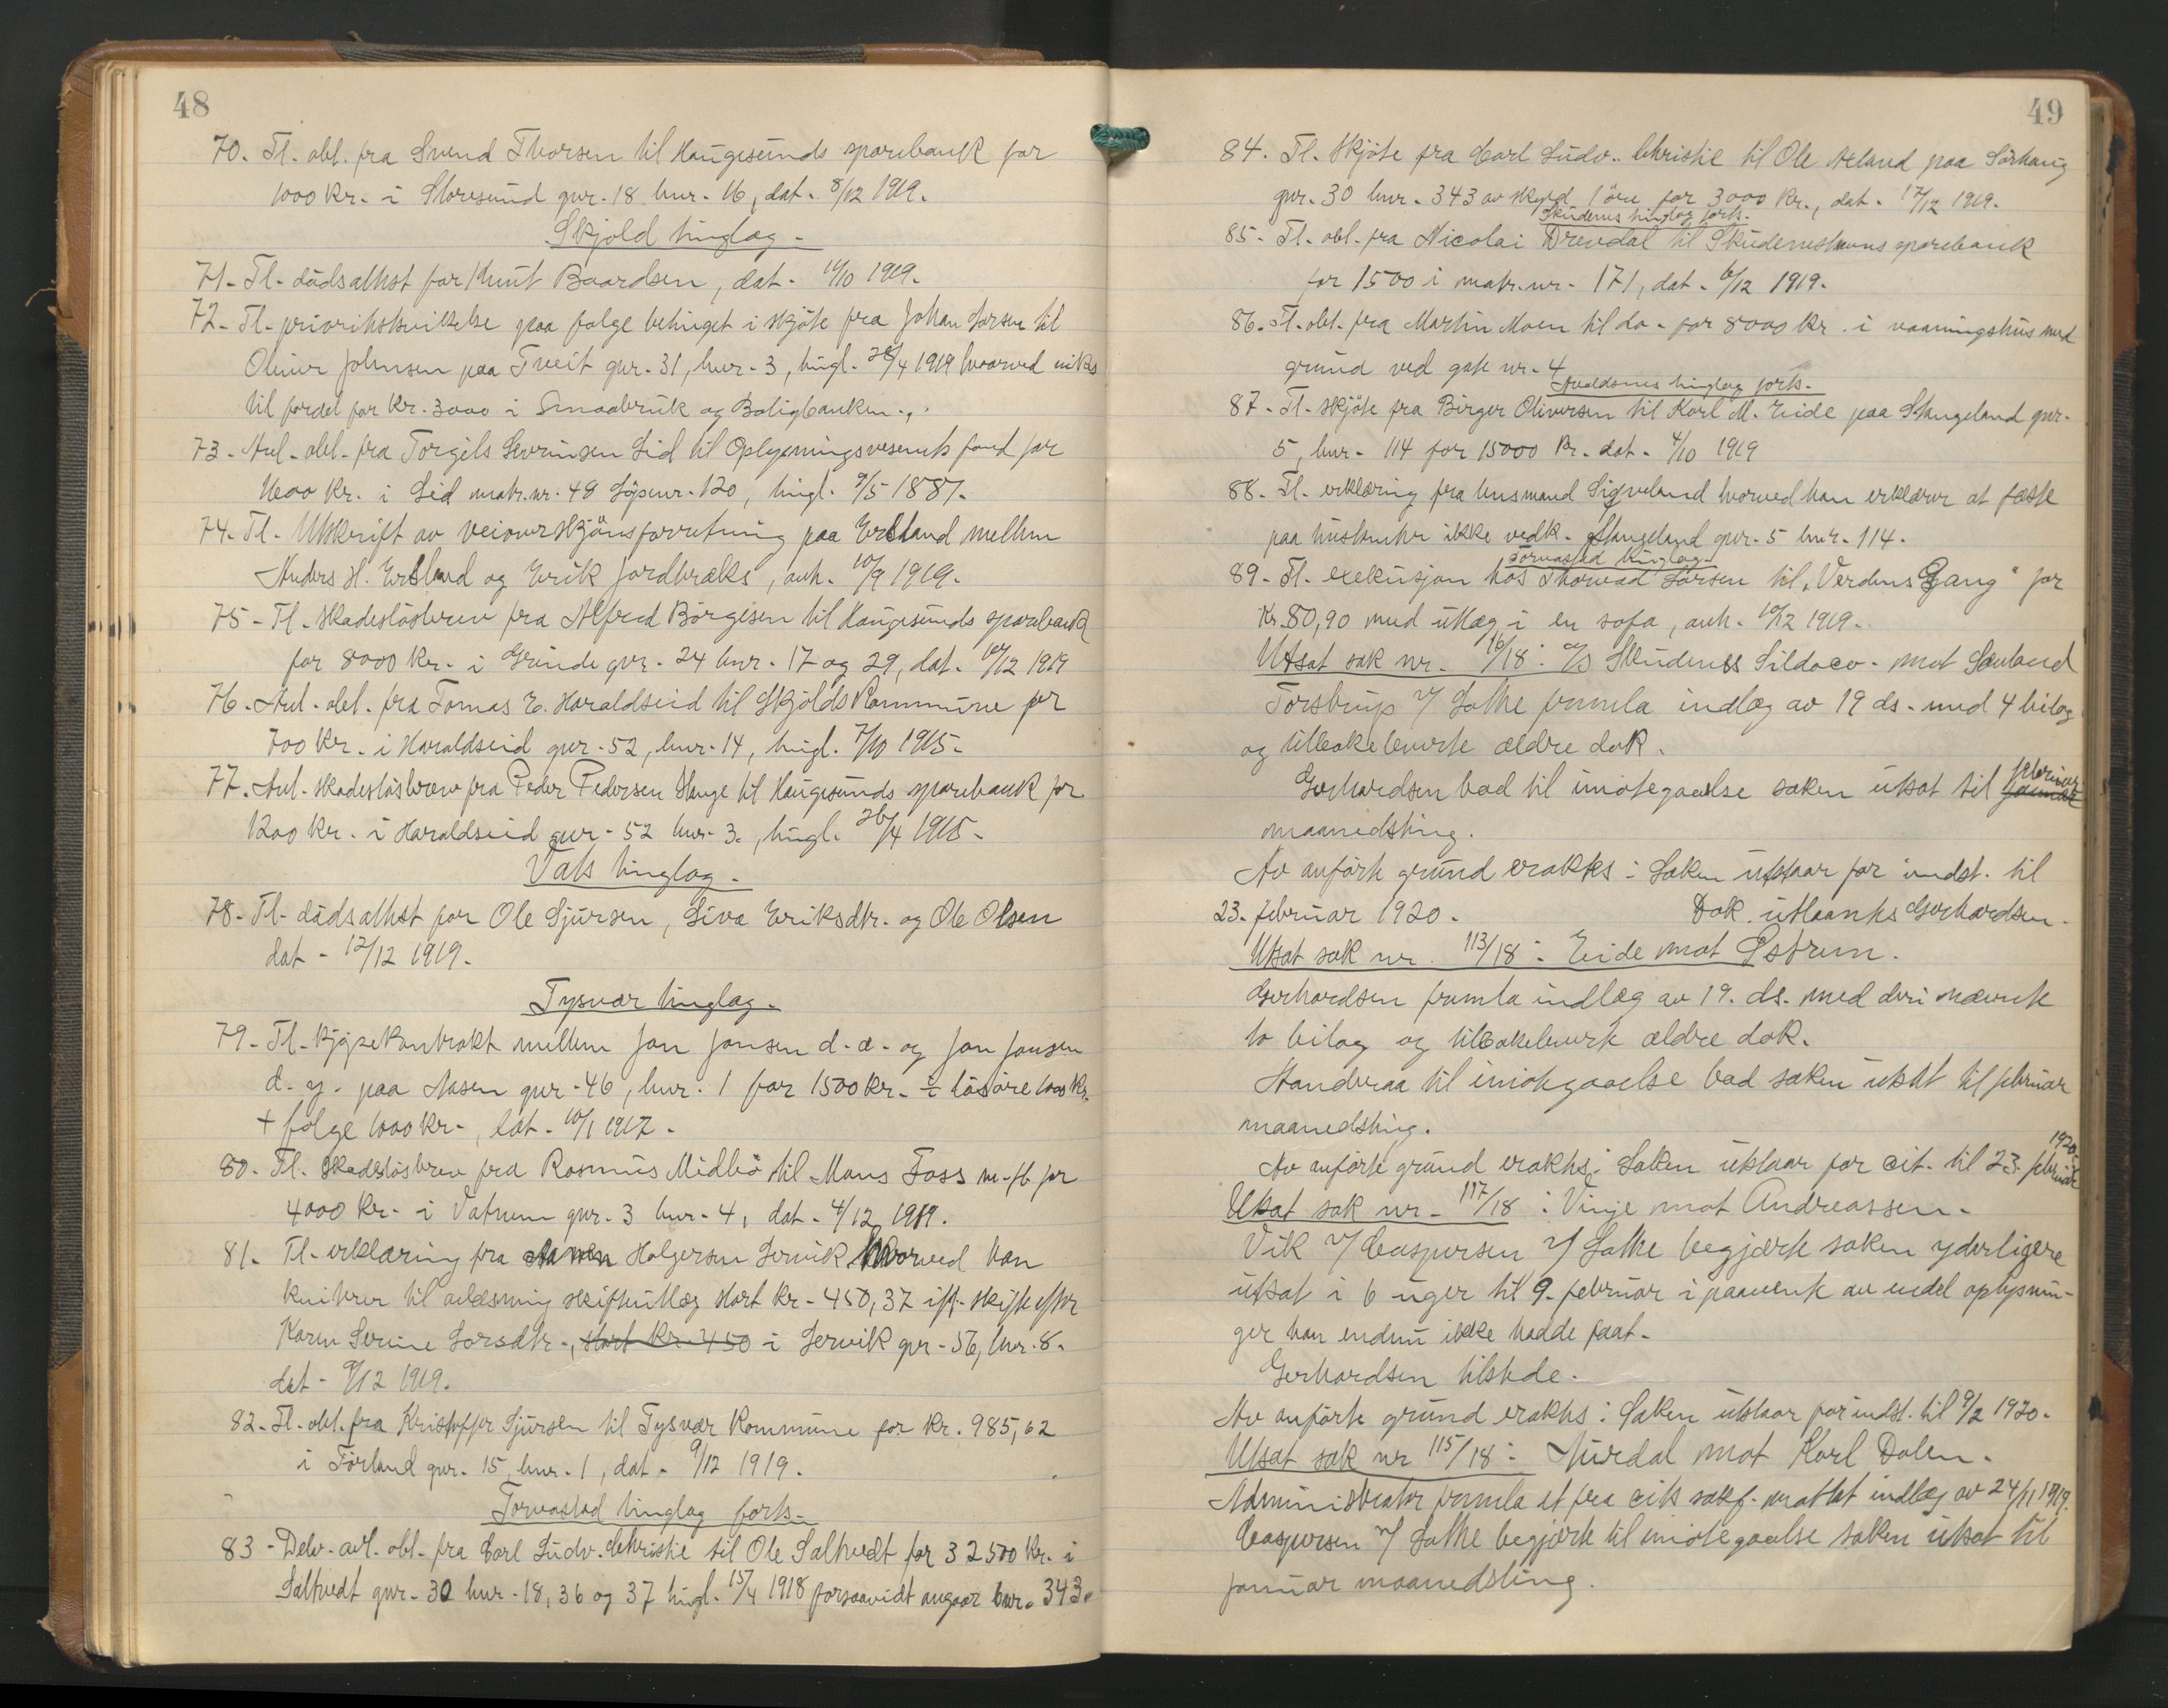 48
70. Tl. obl. fra Svend Thorsen til Haugesunds sparebank for
1000 kr. i Storesund gnr. 18 bnr. 16, dat. 8/12 1919.
Skjold tinglag.
71. Tl. dødsattest for Knut Baardsen, dat. 14/10 1919.
72. Tl. prioritetsvikelse paa følge betinget i skjøte fra Johan Larsen til
Oliver Johnsen paa Tveit gnr. 31, bnr. 3, tingl. 28/4 1919 hvorved vikes
til fordel for kr. 3000 i Smaabruk og Boligbanken.
73. Avl. obl. fra Torgils Sevrinsen Lid til Oplysningsvesenets fond for
1600 kr. i Lid matr.nr. 48 Løpenr. 120, tingl. 9/5 1887.
74. Tl. Utskrift av veioverskjønsforretning paa Erland mellem
Anders H. Erland og Erik Jordbræks, avh. 10/9 1919.
75. Tl. skadesløsbrev fra Alfred Børgesen til Haugesunds sparebank
for 8000 kr. i Grinde gnr. 24 bnr. 17 og 29, dat. 10/12 1919
76. Avl. obl. fra Tomas E. Haraldseid til Skjolds kommune for
700 kr. i Haraldseid gnr. 52, bnr. 14, tingl. 7/10 1915.
77. Avl. skadesløsbrev fra Peder Pedersen Hauge til Haugesunds sparebank for
1200 kr. i Haraldseid gnr. 52 bnr. 3., tingl. 26/4 1915.
Vats tinglag.
78. Tl. dødsattest for Ole Sjursen, Siva Eriksdtr. og Ole Olsen
dat. 12/12 1919.
Tysvær tinglag.
79. Tl. kjøpekontrakt mellem Jan Jansen d. æ. og Jan Jansen
d. y. paa Aasen gnr. 46, bnr. 1 for 1500 kr. ÷ løsøre 1000 kr.
+ følge 1000 kr., dat. 10/1 1917.
80. Tl. Skadesløsbrev fra Rasmus Midbø til Mons Foss m. fl. for
4000 kr. i Vatnem gnr. 3 bnr. 4, dat. 4/12 1919.
81. Tl. erklæring fra Holgersen Lervik hvorved han
kvitterer til avlæsning skifteutlæg stort kr. 450,37 ifl. skifte efter
Karen Serine Larsdtr., stort kr. 450 i Lervik gnr. 56, bnr. 8.
dat. 9/12 1919.
82. Tl. obl. fra Kristoffer Sjursen til Tysvær kommune for kr. 985,62
i Førland gnr. 15, bnr. 1, dat. 9/12 1919.
Torvastad tinglag forts.
83. Delv. avl. obl. fra Carl Ludv. Christie til Ole Saltvedt for 32500 kr. i
Saltvedt gnr. 30 bnr. 18, 36 og 37 tingl. 15/4 1918 forsaavidt angaar bnr. 343.
49
84. Tl. skjøte fra Carl Ludv. Christie til Ole Aeland paa Sørhaug
gnr. 30 bnr. 343 av skyld 1 øre for 3000 kr., dat. 17/12 1919.
Skudenes tinglag forts.
85. Tl. obl. fra Nicolai Drevdal til Skudeneshavns sparebank
for 1500 i matr.nr. 171, dat. 6/12 1919.
86. Tl. obl. fra Martin Moen til do. for 8000 kr. i vaaningshus med
grund ved gate nr. 4
Avaldsnes tinglag forts.
87. Tl. skjøte fra Birger Oliversen til Karl M. Eide paa Stangeland gnr.
5, bnr. 114 for 15000 kr. dat. 4/10 1919
88. Tl. erklæring fra lensmand Sigveland hvorved han erklærer at fæste
paa hustomter ikke vedk. Stangeland gnr. 5 bnr. 114.
Torvastad tinglag.
89. Tl. exekusjon hos Thorvad Larsen til "Verdens Gang" for
kr. 80,90 med utlæg i en sofa, avh. 10/12 1919.
Utsat sak nr. 16/18: A/S Skudenes Sildoco. mot Sauland
Torstrup v/ Lothe fremla indlæg av 19 ds. med 4 bilag
og tilbakeleverte ældre dok.
Gerhardsen bad til imøtegaaelse saken utsat til januar februar
maanedsting.
Av anførte grund eraktes: Saken utstaar for indst. til
23. februar 1920. Dok. utlaantes Gerhardsen.
Utsat sak nr. 113/18: Eide mot Østrem.
Gerhardsen fremla indlæg av 19. ds. med deri nævnte
to bilag og tilbakeleverte ældre dok.
Standeraa til imøtegaaelse bad saken utsat til februar
maanedsting.
Av anførte grund eraktes: Saken utstaar for cit. til 23. februar 1920.
Utsat sak nr. 117/18: Vinje mot Andreassen.
Vik v/ Caspersen v/ Lothe begjærte saken yderligere
utsat i 6 uger til 9. februar i paavente av endel oplysnin-
ger han endnu ikke hadde faat.
Gerhardsen tilstede.
Av anførte grund eraktes: Saken utstaar for indst. til 9/2 1920.
Utsat sak nr 115/18: Aurdal mot Karl Dalen.
Administrator fremla et fra cits sakf. mottat indlæg av 24/11 1919.
Caspersen v/ Lothe begjærte til imøtegaaelse saken utsat til
januar maanedsting.